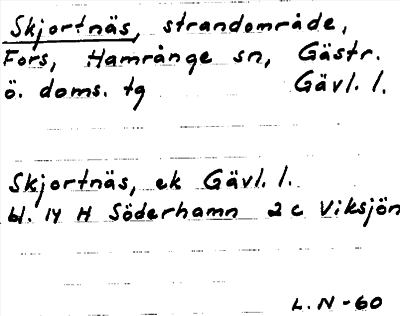 Skjortnäs, strandområde,
Fors, Hamrånge sn, Gästr.
ö. doms. tg Gävl. l.
Skjortnäs, ek Gävl. l.
bl. 14 H Söderhamn 2 c Viksjön
L. N - 60